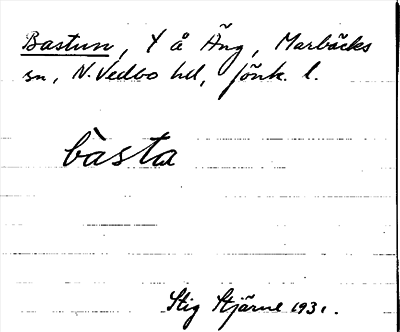 Bastun, Y å Äng, Marbäcks
sn, N. Vedbo hd, Jönk. l.
bàsta
Stig Stjärne 1931.